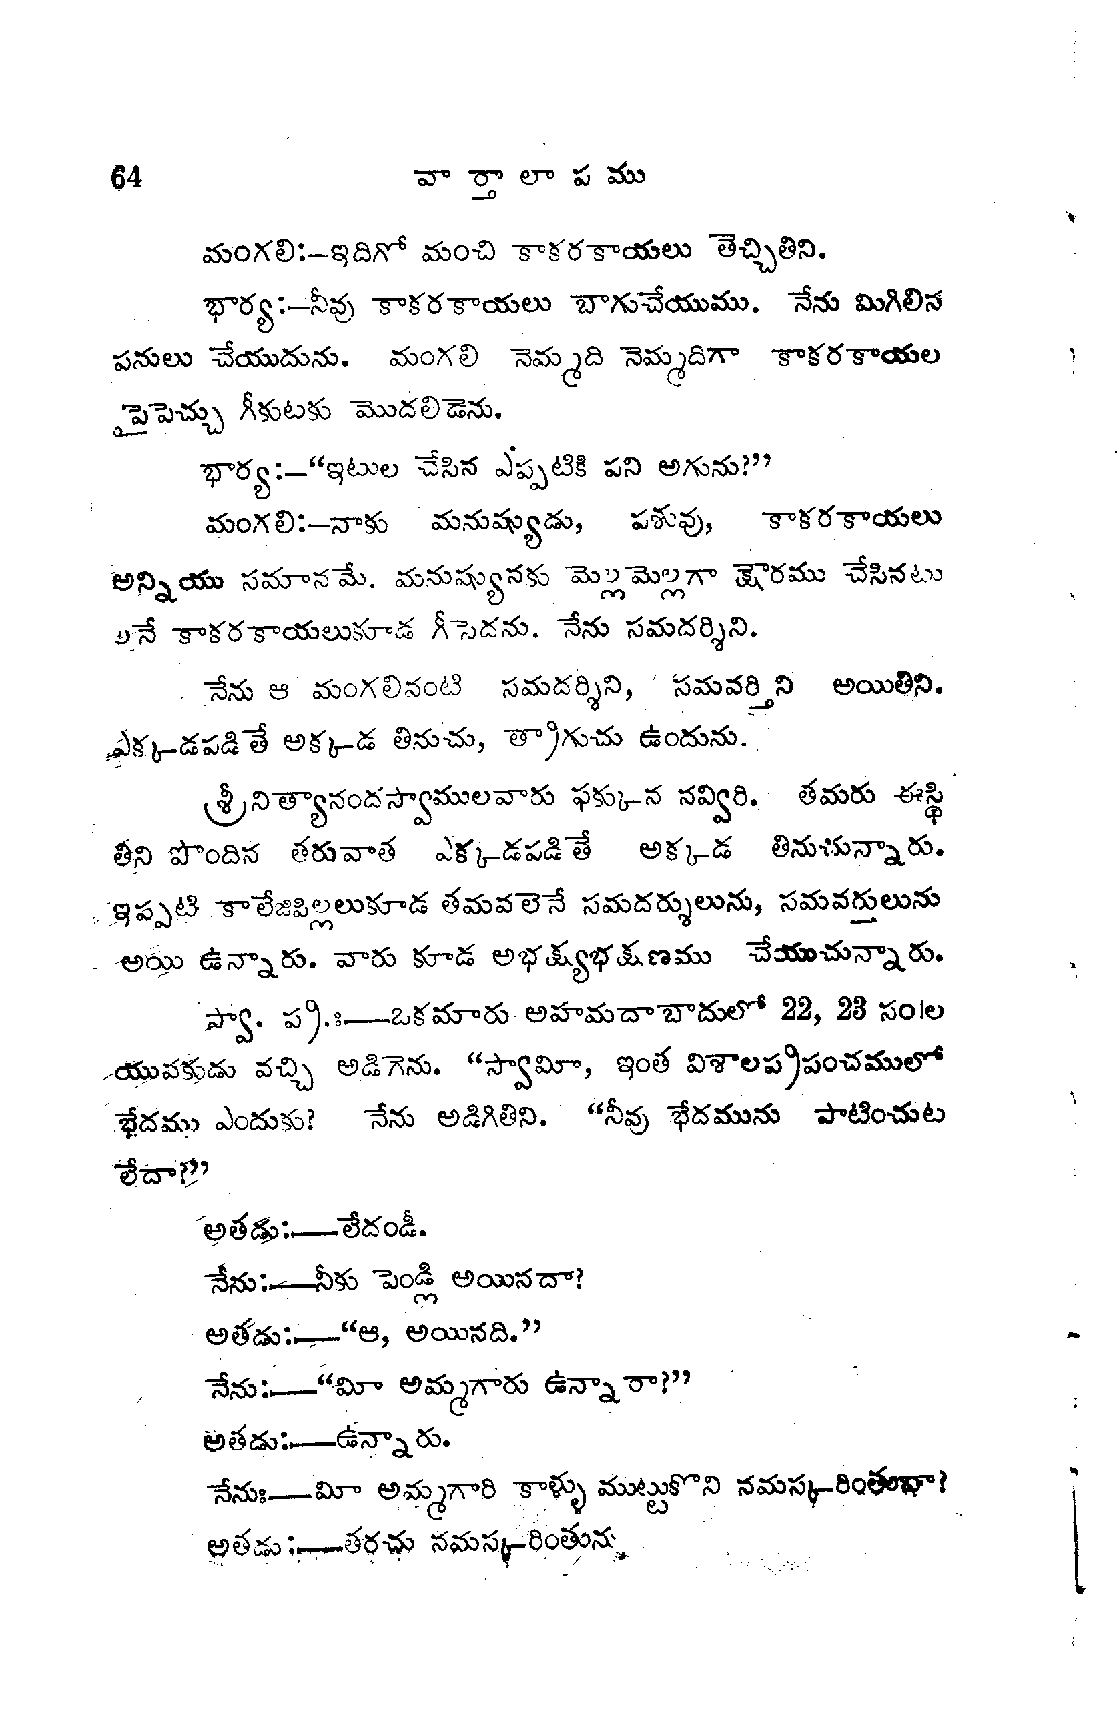 64 వార్తాలాపము
మంగలి:—ఇదిగో మంచి కాకరకాయలు తెచ్చితిని.
భార్య:—నీవు కాకరకాయలు బాగుచేయుము. నేను మిగిలిన
పనులు చేయుదును. మంగలి నెమ్మది నెమ్మదిగా కాకరకాయల
పైపెచ్చు గీకుటకు మొదలిడెను.
భార్య:—“ఇటుల చేసిన ఎప్పటికి పని అగును?”
మంగలి:—నాకు మనుష్యుడు, పశువు, కాకరకాయలు
అన్నియు సమానమే. మనుష్యునకు మెల్లమెల్లగా క్షౌరము చేసినటు
లనే కాకరకాయలుకూడ గీసెదను. నేను సమదర్శిని.
నేను ఆ మంగలివంటి సమదర్శిని, సమవర్తిని అయితిని.
ఎక్కడపడితే అక్కడ తినుచు, త్రాగుచు ఉందును.
శ్రీనిత్యానందస్వాములవారు ఫక్కున నవ్విరి. తమరు ఈస్థి
తిని పొందిన తరువాత ఎక్కడపడితే అక్కడ తినుచున్నారు.
ఇప్పటి కాలేజిపిల్లలుకూడ తమవలెనే సమదర్శులును, సమవర్తులును
అయి ఉన్నారు. వారు కూడ అభక్ష్యభక్షణము చేయుచున్నారు.
స్వా. ప్ర.ః—ఒకమారు అహమదాబాదులో 22, 23 సం॥ల
యువకుడు వచ్చి అడిగెను. “స్వామీ, ఇంత విశాలప్రపంచములో
భేదము ఎందుకు? నేను అడిగితిని. “నీవు భేదమును పాటించుట
లేదా?”
అతడు:—లేదండీ.
నేను:—నీకు పెండ్లి అయినదా?
అతడు:—“ఆ, అయినది.”
నేను:—“మీ అమ్మగారు ఉన్నారా?”
అతడు:—ఉన్నారు.
నేనుః—మీ అమ్మగారి కాళ్ళు ముట్టుకొని నమస్కరింతువా?
అతడు:—తరచు నమస్కరింతును.